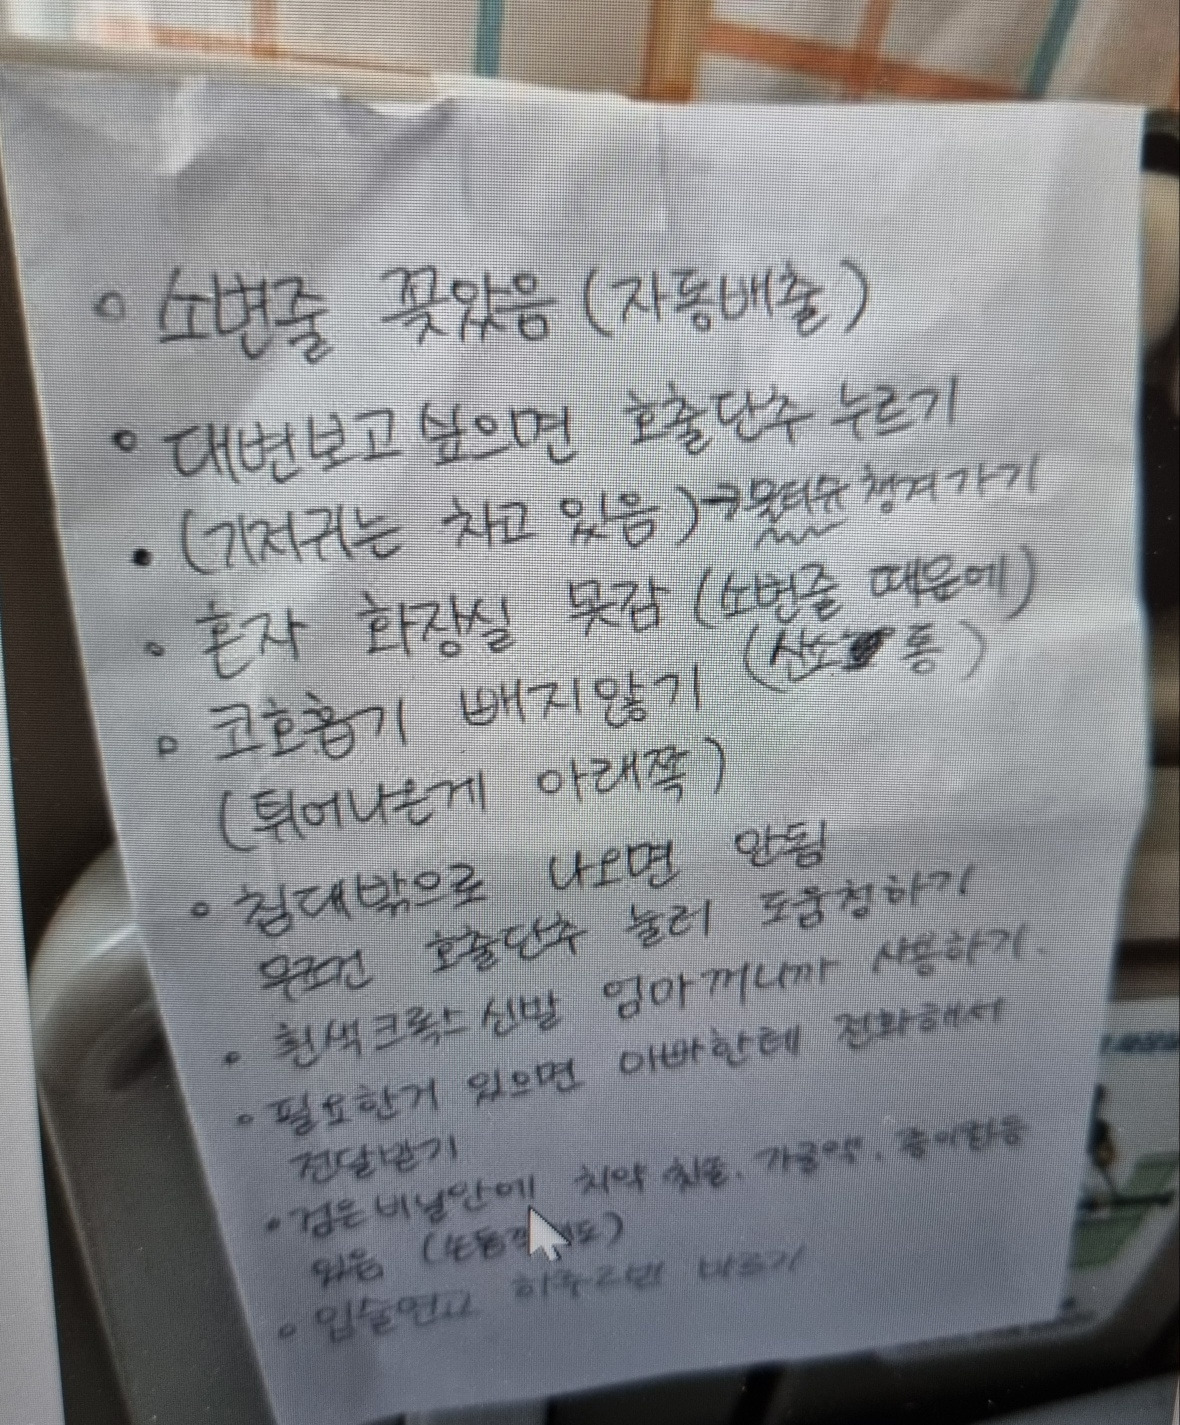 ◦ 소변줄 꽂았음 (자동배출)
◦ 대변보고싶으면 호출단추 누르기
• (기저귀는 차고 있음) → 물티슈 챙겨가기
◦ 혼자 화장실 못감 (소변줄 때문에)
(산소통)
◦ 코호흡기 빼지않기
(튀어나온게 아래쪽)
◦ 침대밖으로 나오면 안됨
무조건 호출단추 눌러 도움청하기
• 흰색크록스신발 엄마꺼니까 사용하기.
◦ 필요한거 있으면 아빠한테 전화해서
전달받기
• 검은비닐안에 치약 칫솔, 가글액, 종이컵등
있음
◦ 입술연고 하루2번 바르기